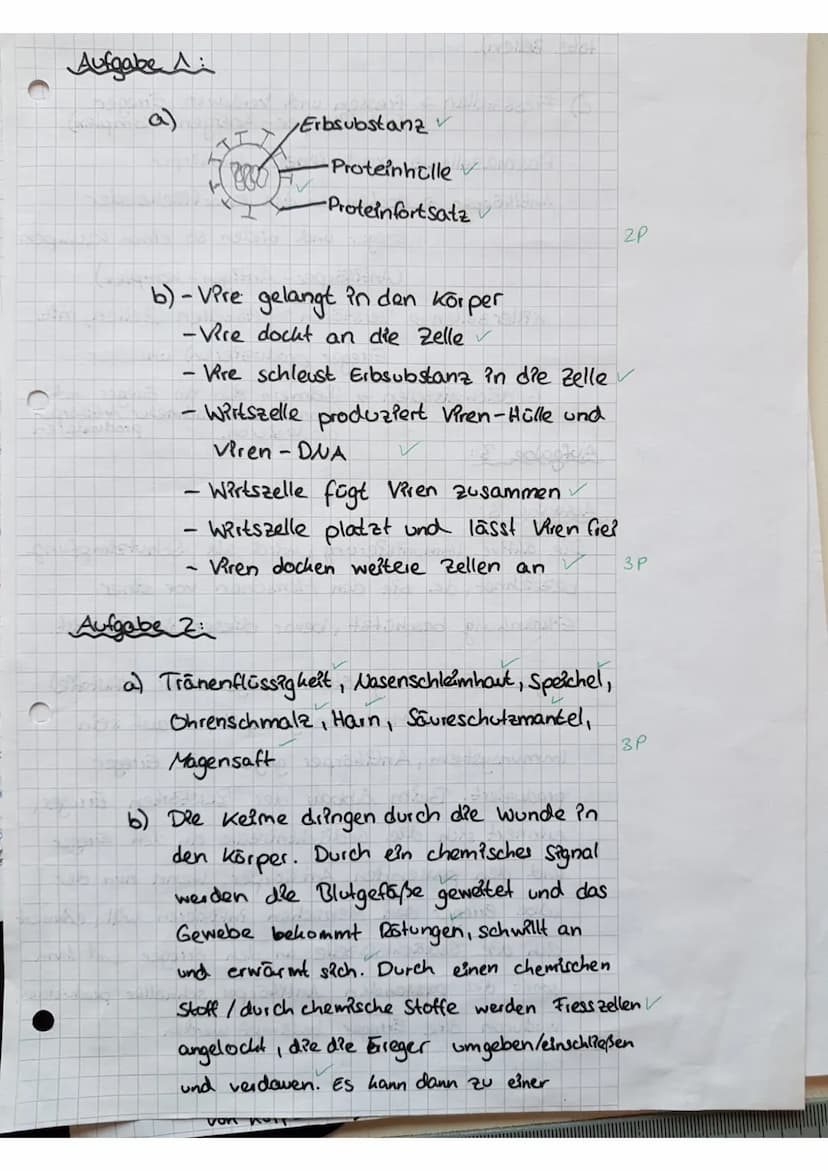 Aufgabe 1:
a)
Erbsubstanz ✓
Proteinhülle ✓
Proteinfortsatz ✓
2P
b) - Vire gelangt in den Körper
- Vire dockt an die Zelle ✓
- Vire schleust Erbsubstanz in die Zelle ✓
- Wirtszelle produziert Viren-Hülle und
Viren - DNA ✓
- Wirtszelle fügt Viren zusammen ✓
- Wirtszelle platzt und lässt Viren frei
- Viren docken weitere Zellen an ✓ 3P
Aufgabe 2:
a) Tränenflüssigkeit, Nasenschleimhaut, Speichel,
Ohrenschmalz, Harn, Säureschutzmantel,
Magensaft
3P
b) Die Keime dringen durch die Wunde in
den Körper. Durch ein chemisches Signal
werden die Blutgefäße geweitet und das
Gewebe bekommt Rötungen, schwillt an
und erwärmt sich. Durch einen chemischen
Stoff / durch chemische Stoffe werden Fresszellen ✓
angelockt, die die Erreger umgeben/einschließen
und verdauen. Es kann dann zu einer